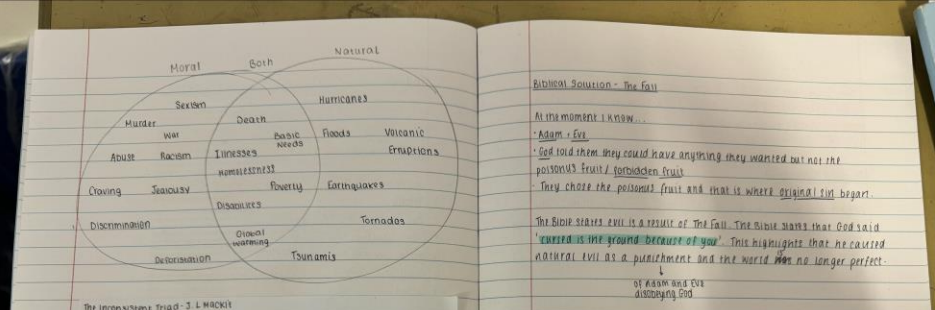 Moral
Both
Natural
Sexism
Murder
War
Abuse
Racism
Craving
Jealousy
Discrimination
Deforestation
Death
Basic
Needs
Illnesses
Homelessness
Poverty
Disabilites
Global
warming
Hurricanes
Floods
Volcanic
Eruptions
Earthquakes
Tornados
Tsunamis
The Inconsistent Triad - J. L Mackie
Biblical Solution - The Fall
At the moment I know...
· Adam + Eve
· God told them they could have anything they wanted but not the
poisonus fruit / forbidden fruit
· They chose the poisonus fruit and that is where original sin began.
The Bible states evil is a result of The Fall. The Bible states that God said
'cursed is the ground because of you'. This highlights that he caused
natural evil as a punishment and the world is no longer perfect.
↓
of Adam and Eve
disobeying God